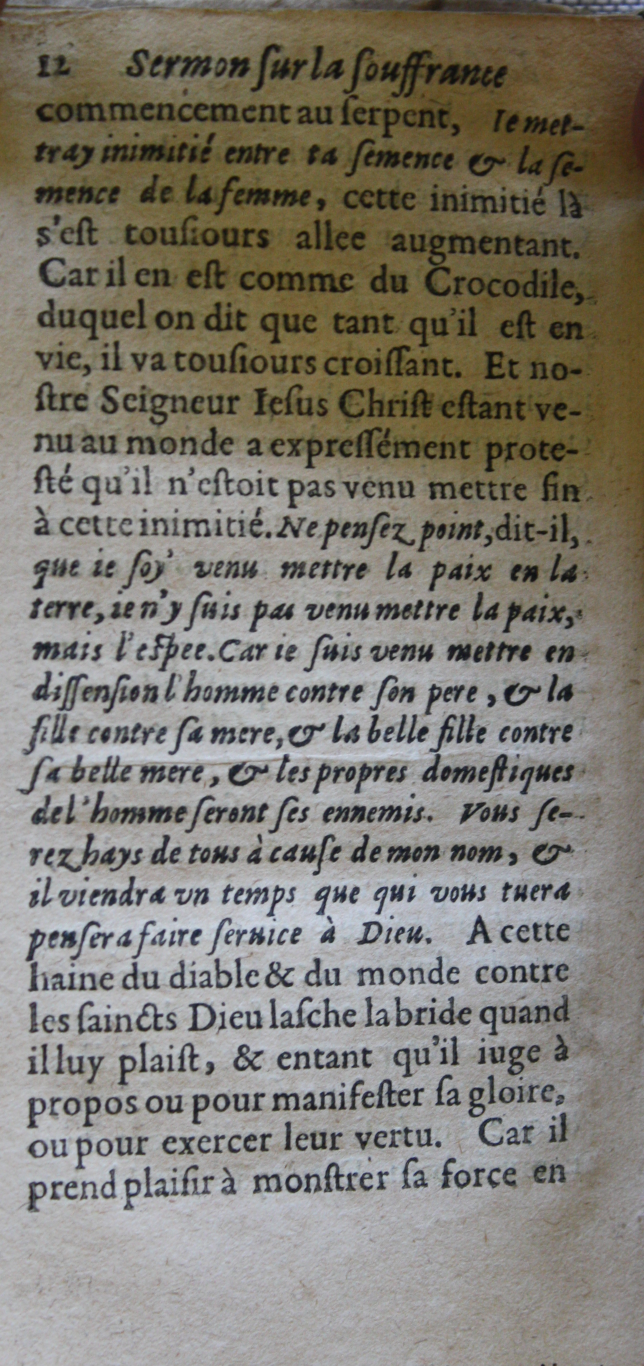 12 Sermon ſur la ſouffrance
commencement au ſerpent, Ie met-
tray inimitié entre ta ſemence & la ſe-
mence de la femme, cette inimitié là
s'eſt touſiours allee augmentant.
Car il en eſt comme du Crocodile,
duquel on dit que tant qu'il eſt en
vie, il va touſiours croiſſant. Et no-
ſtre Seigneur Ieſus Chriſt eſtant ve-
nu au monde a expreſſément prote-
ſté qu'il n'eſtoit pas venu mettre fin
à cette inimitié. Ne penſez point, dit-il,
que ie ſoy' venu mettre la paix en la
terre, ie n'y ſuis pas venu mettre la paix,
mais l'eſpee. Car ie ſuis venu mettre en
diſſenſion l'homme contre ſon pere, & la
fille contre ſa mere, & la belle fille contre
ſa belle mere, & les propres domeſtiques
de l'homme ſeront ſes ennemis. Vous ſe-
rez hays de tous à cauſe de mon nom, &
il viendra vn temps que qui vous tuera
penſera faire ſeruice à Dieu. A cette
haine du diable & du monde contre
les ſaincts Dieu laſche la bride quand
il luy plaiſt, & entant qu'il iuge à
propos ou pour manifeſter ſa gloire,
ou pour exercer leur vertu. Car il
prend plaiſir à monſtrer ſa force en